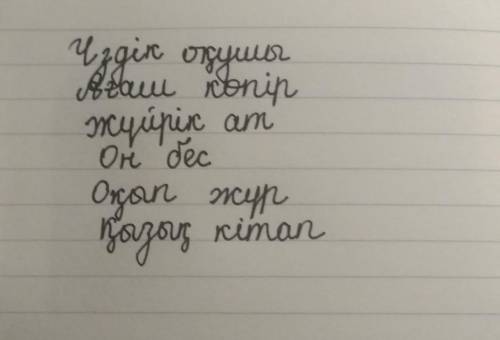 Үздік оқушы
Ағаш көпір
жүйрік ат
Он бес
Оқып жүр
Қызық кітап